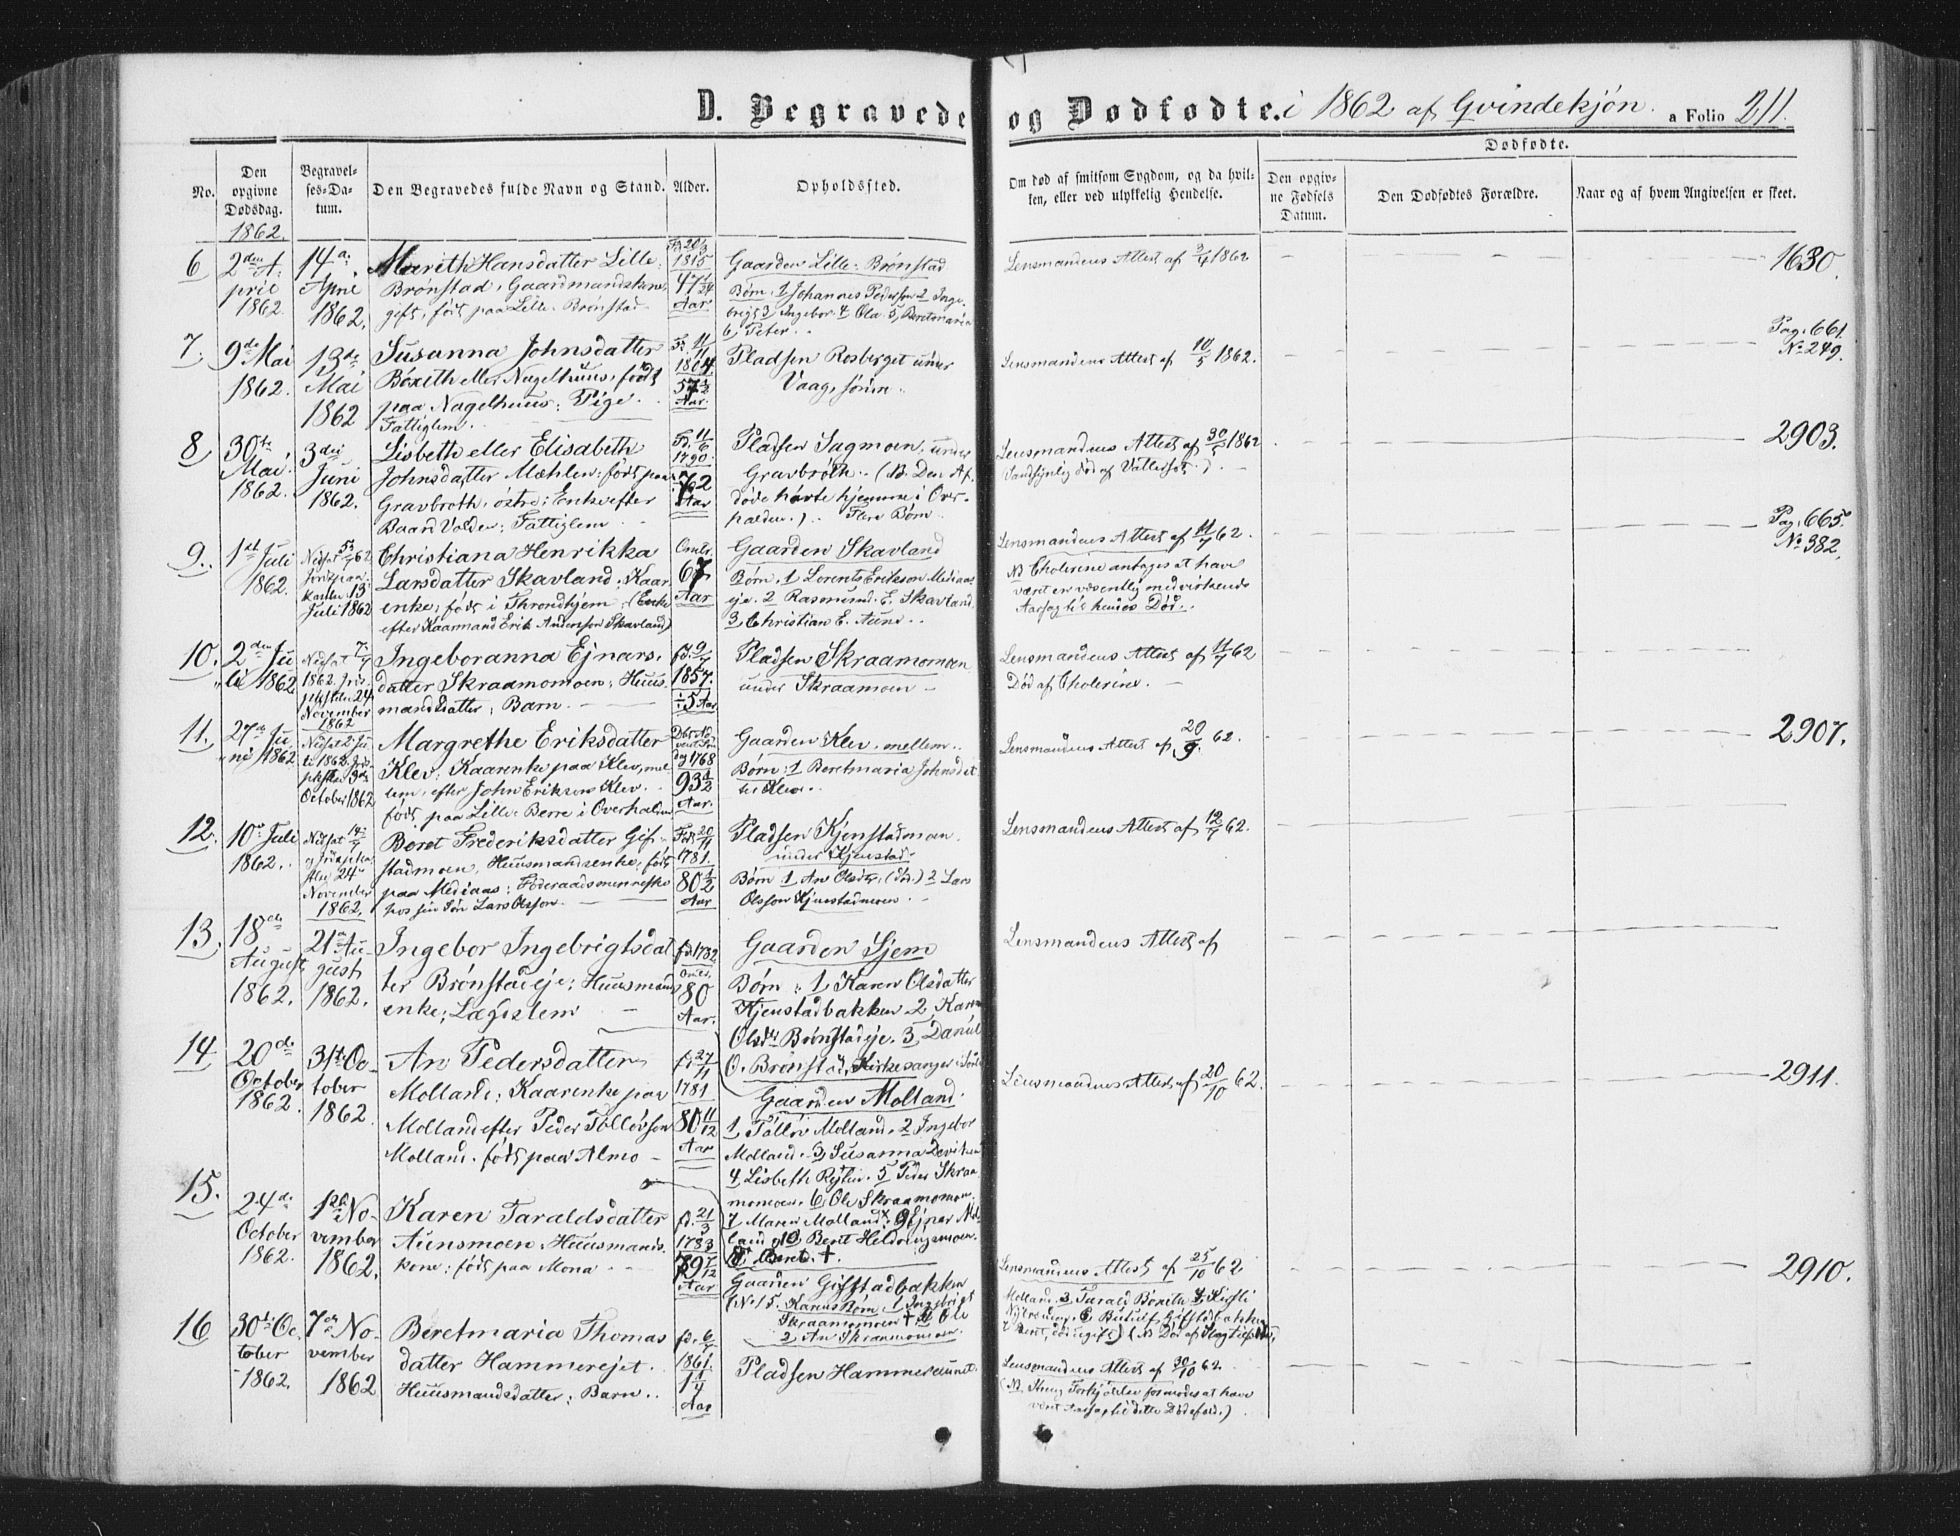 D. Begravede og Dødfødte. i 1862 af Qvindekjøn. a Folio 211.
No.
Den opgivne Dødsdag. 1862.
Begravelses-Datum.
Den Begravedes fulde Navn og Stand.
Alder.
Opholdssted.
Om død af smitsom Sygdom, og da hvilken, eller ved ulykkelig Hendelse.
Dødfødte.
Den opgivne Fødsels Datum.
Den Dødfødtes Forældre.
Naar og af hvem Angivelsen er skeet.
6
2den April 1862.
14de April 1862.
Marith Hansdatter Lille
Brønstad, Gaardmandskone,
gift, født paa Lille Brønstad
1815
47 1/24 Aar
Gaarden Lille Brønstad
Børn, 1 Johannes Pedersen 2 Inge-
brigt 3 Ingebor 4 Ole 5, Beretmaria
6 Peter
Lensmandens Attest af 3/4 1862
1630.
7.
9de Mai 1862.
13de Mai 1862
Susanna Johnsdatter
Bøxeth eller Nagelhuus, født
paa Nagelhuus; Pige
Fattiglem
11/11 1804.
57 1/2 Aar.
Pladsen Rosberget under
Vaag, søndre
Lensmandens Attest af 10/5 1862.
Pag. 661.
No 249.
8
30te Mai 1862.
3die Juni 1862.
Lisbeth eller Elisabeth
Johnsdatter Mæhlen: født paa
Gravbroth, østre; Enke efter
Baard Volden; Fattiglem
11/6 1790.
72 Aar
Pladsen Sagmoen, under
Gravbroth. (NB. Den Af-
døde hørte hjemme i Over-
halden.) Flere Børn
Lensmandens Attest af 30/5 1862
2903.
9.
1st Juli 1862.
Nedsat 5/7 62
Jordpaa-
kasten 13
Juli 1862
Christiana Henrikka
Larsdatter Skavland; Kaar-
enke; født i Throndhjem; (Enke
efter Kaarmand Erik Andersson Skavland)
Omtr. 67 Aar
Gaarden Skavland
Børn, 1 Lorents Erikson Mediaas-
eje. 2 Rasmund E. Skavland
3 Christian E. Aune
Lensmandens Attest af 11/7 62.
NB Cholerine antages at have
været en væsentlig medvirkende
Aarsag til hendes Død.
Pag. 665.
No 382.
10.
2den Juli 1862
Nedsat 7/7
1862. Jord-
24
November
1862
Ingeboranna Ejnars-
datter Skraamomoen; Huus-
mandsdatter; Barn.
fd. 9/7 1857.
÷ 5 Aar
Pladsen Skraamomoen
under Skraamoen
Lensmandens Attest af 11/7 62
Død af Cholerine.
11.
27de Juni 1862
Nedsat 2 Ju-
li 1862
October 1862
Margrethe Eriksdatter
Klev; Kaarenke paa Klev, mel-
lem, efter John Erikson Klev.
født paa Lille Berre i Overhalden
1768
93 1/2 Aar.
Gaarden Klev, mellem
Børn: 1 Beretmaria Johnsdat-
ter Klev
Lensmandens Attest af 20/9 62.
2907.
12.
10de Juli 1862.
Nedsat 14/7
24de
November
1862.
Beret Frederiksdatter Gif-
stadmoen, Huusmandsenke, født
paa Mediaas; Føderaadsmenneske
hos sin Søn Lars Olsson.
20/11 1781.
80 1/2 Aar
Pladsen Kjenstadmoen
under Kjenstad.
Børn 1 An Olsdtr. (død.) 2 Lars
Olsson Kjenstadmoen
Lensmandens Attest af 12/7 62.
13.
18de August 1862.
21de August 1862.
Ingebor Ingebrigtsdat-
ter Brønstadeje; Huusmands-
enke; Lægslem
fd. 1782
80 Aar.
Gaarden Sjem
Børn: 1 Karen Olsdatter
Kjenstadbakken 2 Karen
Olsdtr Brønstadeje. 3 Daniel
O. Brønstad, Kirkesanger
Lensmandens Attest af
14
20de October 1862.
31te October 1862.
An Pedersdatter
Molland; Kaarenke paa
Molland efter Peder Tolløvson
Molland. født paa Almo
fd. 27/11 1781
80 11/12 Aar
Gaarden Molland.
1 Tolløv Molland. 2 Ingebor
Molland. 3 Susanna
4 Lisbeth 5 Peder Skraa-
momoen. 6 Ole Skraamomoen.
7 Maren Molland 9 Ejnar
land 10 Beret Heldringsmoen.
Beret †.
Lensmandens Attest af 20/10 62.
2911.
15.
24de October 1862.
1ste November 1862.
Karen Taraldsdatter
Aunsmoen, Huusmands-
kone; født paa Mona
fd. 21/3 1783
79 7/12 Aar
Gaarden Gifstadbakken
(No 15. Karens Børn. 1 Ingebrigt
Skraamomoen † Ole
2 An Skraamomoen.
Lensmandens Attest af 25/10 62
Molland. 3 Tarald Bøxeth 4
2910.
16
30te October 1862.
7de November 1862
Beretmaria Thomas-
datter Hammerejet.
Huusmandsdatter; Barn.
fd. 6/7 1861.
1 1/4 Aar
Pladsen Hammeraunet
Lensmandens Attest af 30/10 62.
(NB Streng Forkjølelse formodes at have
været Aarsag til dette Dødsfald.)